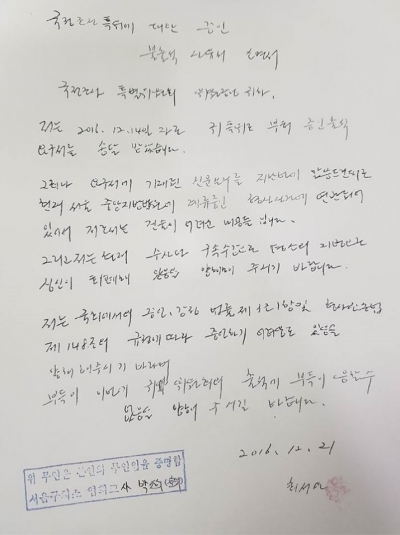 국정조사 특위에 대한 증인
불출석 사유서
국정조사 특별위원회 위원장님 귀하.
저는 2016. 12. 14일자로 귀 특위로 부터 증인출석
요구서를 송달 받았습니다.
그러나 요구서에 기재된 신문요지를
현재 서울 중앙지방법원에 계류중인 형사사건에 연관되어
있어서 진술이 어려운 내용들 입니다.
그리고 저는 현재 수사와 구속수감으로 평소의 지병으로
심신이 피폐해 있음을 양해해 주시기 바랍니다.
저는 국회에서의 증언, 감정 법률 제3조 1항 및 형사소송법
제148조의 규정에 따라 증언하기 어려운 상황을
양해해주시기 바라며
부득이 이번 귀 위원회의 출석에 부득이 응할 수
없음을 양해해 주시길 바랍니다.
2016. 12. 21
최서원
위 무인은 본인의 무인임을 증명함
서울구치소 교사 박